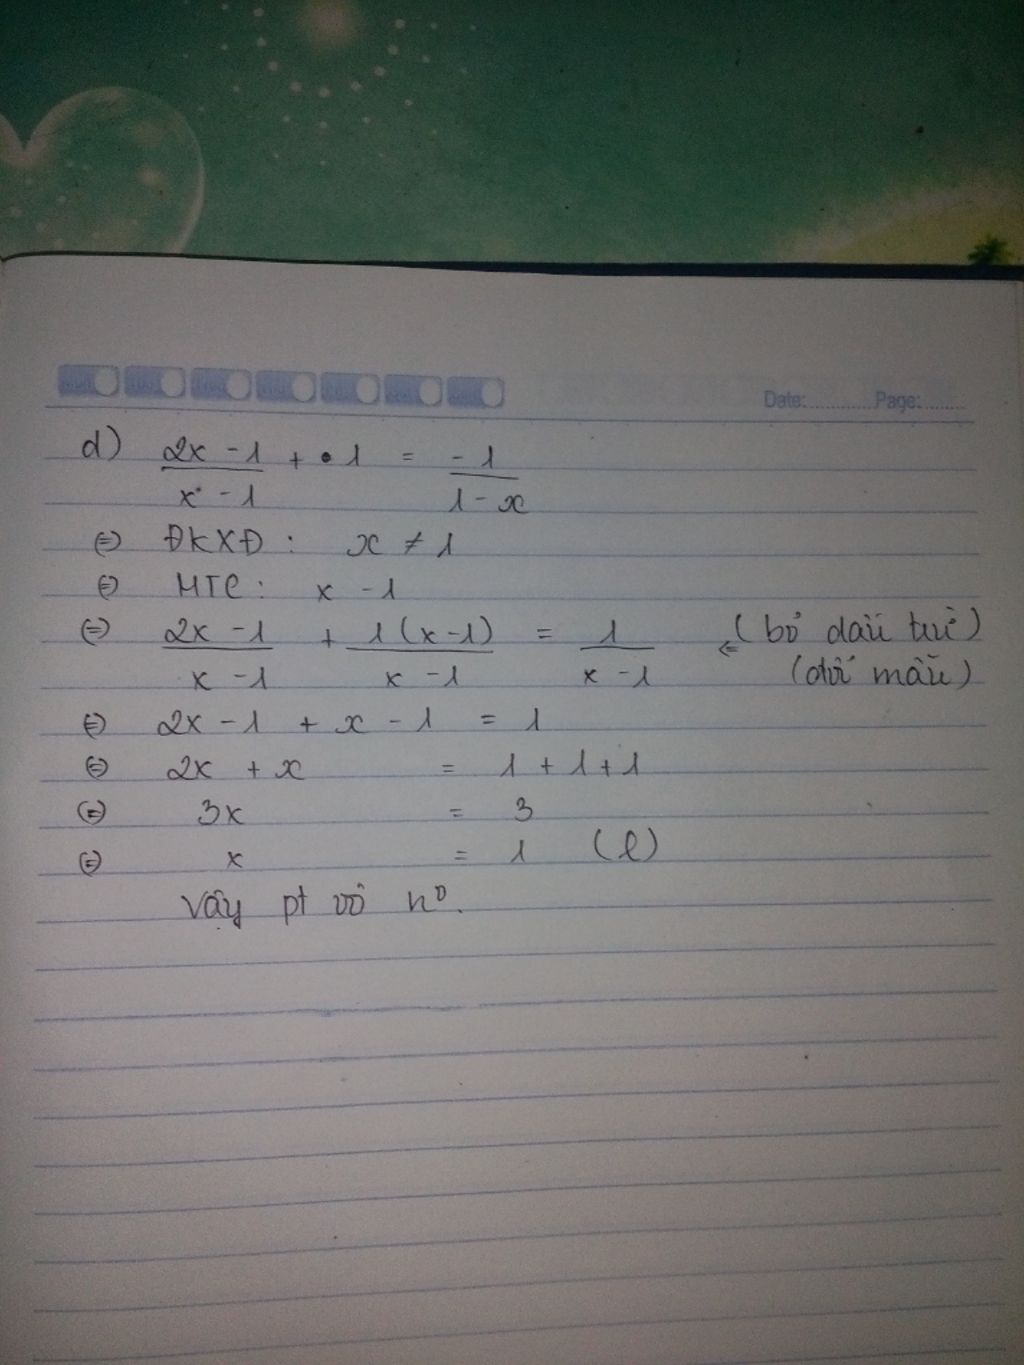 Date:............Page:........
d) (2x - 1)/(x - 1) + 1 = (-1)/(1 - x)
⇔ ĐKXĐ : x ≠ 1
⇔ MTC : x - 1
⇔ (2x - 1)/(x - 1) + 1(x-1)/(x - 1) = 1/(x - 1) ⇐ (bỏ dấu trừ)
(đổi mẫu)
⇔ 2x - 1 + x - 1 = 1
⇔ 2x + x = 1 + 1 + 1
⇔ 3x = 3
⇔ x = 1 (l)
Vậy pt vô n⁰.